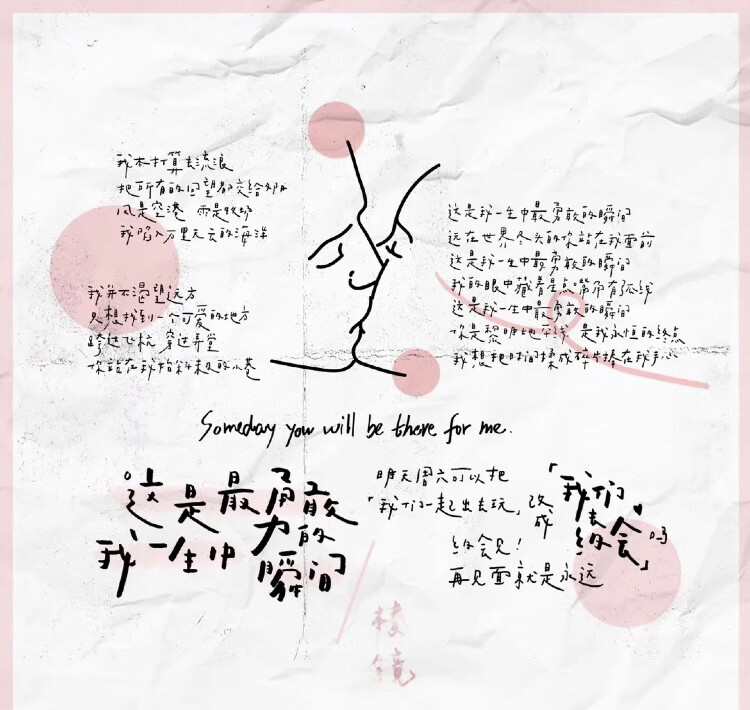 我本打算去流浪
把所有的回望都交给邻
风是空港 雨是牧场
我陷入万里无云的海洋
我并不渴望远方
只想找到一个可爱的地方
跨过飞杭 穿过弄堂
你站在我始料的小巷
这是我一生中最勇敢的瞬间
远在世界尽头的你站在我面前
这是我一生中最勇敢的瞬间
我的眼中藏着星点嘴角有弧线
这是我一生中最勇敢的瞬间
你是黎明地平线 是我永恒的终点
我想把时间揉成碎片捧在我手心
Someday you will be there for me.
这是最勇敢的
我一生中
瞬间
明天周六可以把
「我们一起出去玩」改成
「我们去约会」吗
约会见！
再见面就是永远
棱镜